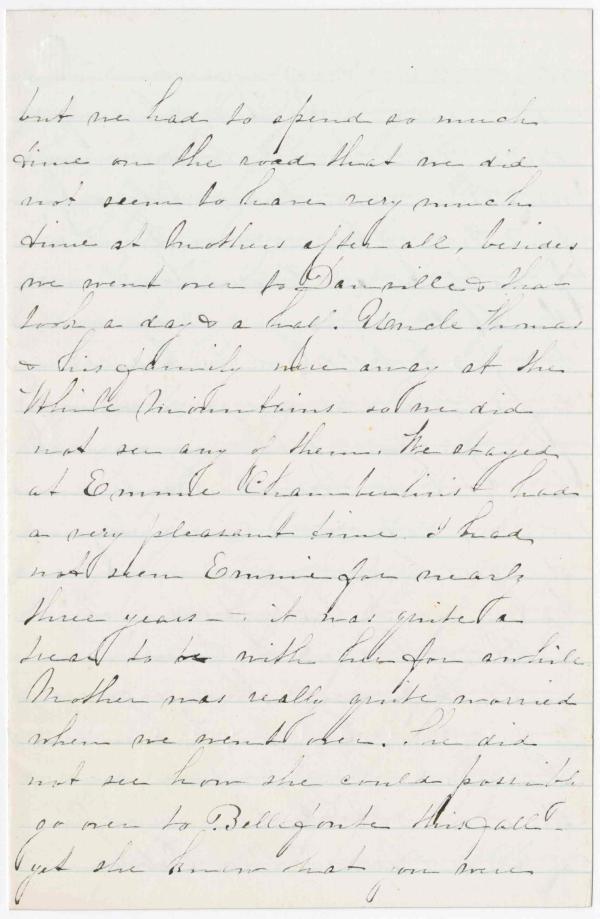 but we had to spend so much
time on the road that we did
not seem to have very much
time at Mothers after all, besides
we went over to Danville & that
took a day & a half. Uncle Thomas
& his family were away at the
White Mountains so we did
not see any of them. We stayed
at Emmie Chamberlins & had
a very pleasant time. I had
not seen Emmie for nearly
three years - it was quite a
treat to be with her for awhile
Mother was really quite worried
when we went over. She did
not see how she could possibly
go over to Bellefonte this fall -
yet she knew that you were